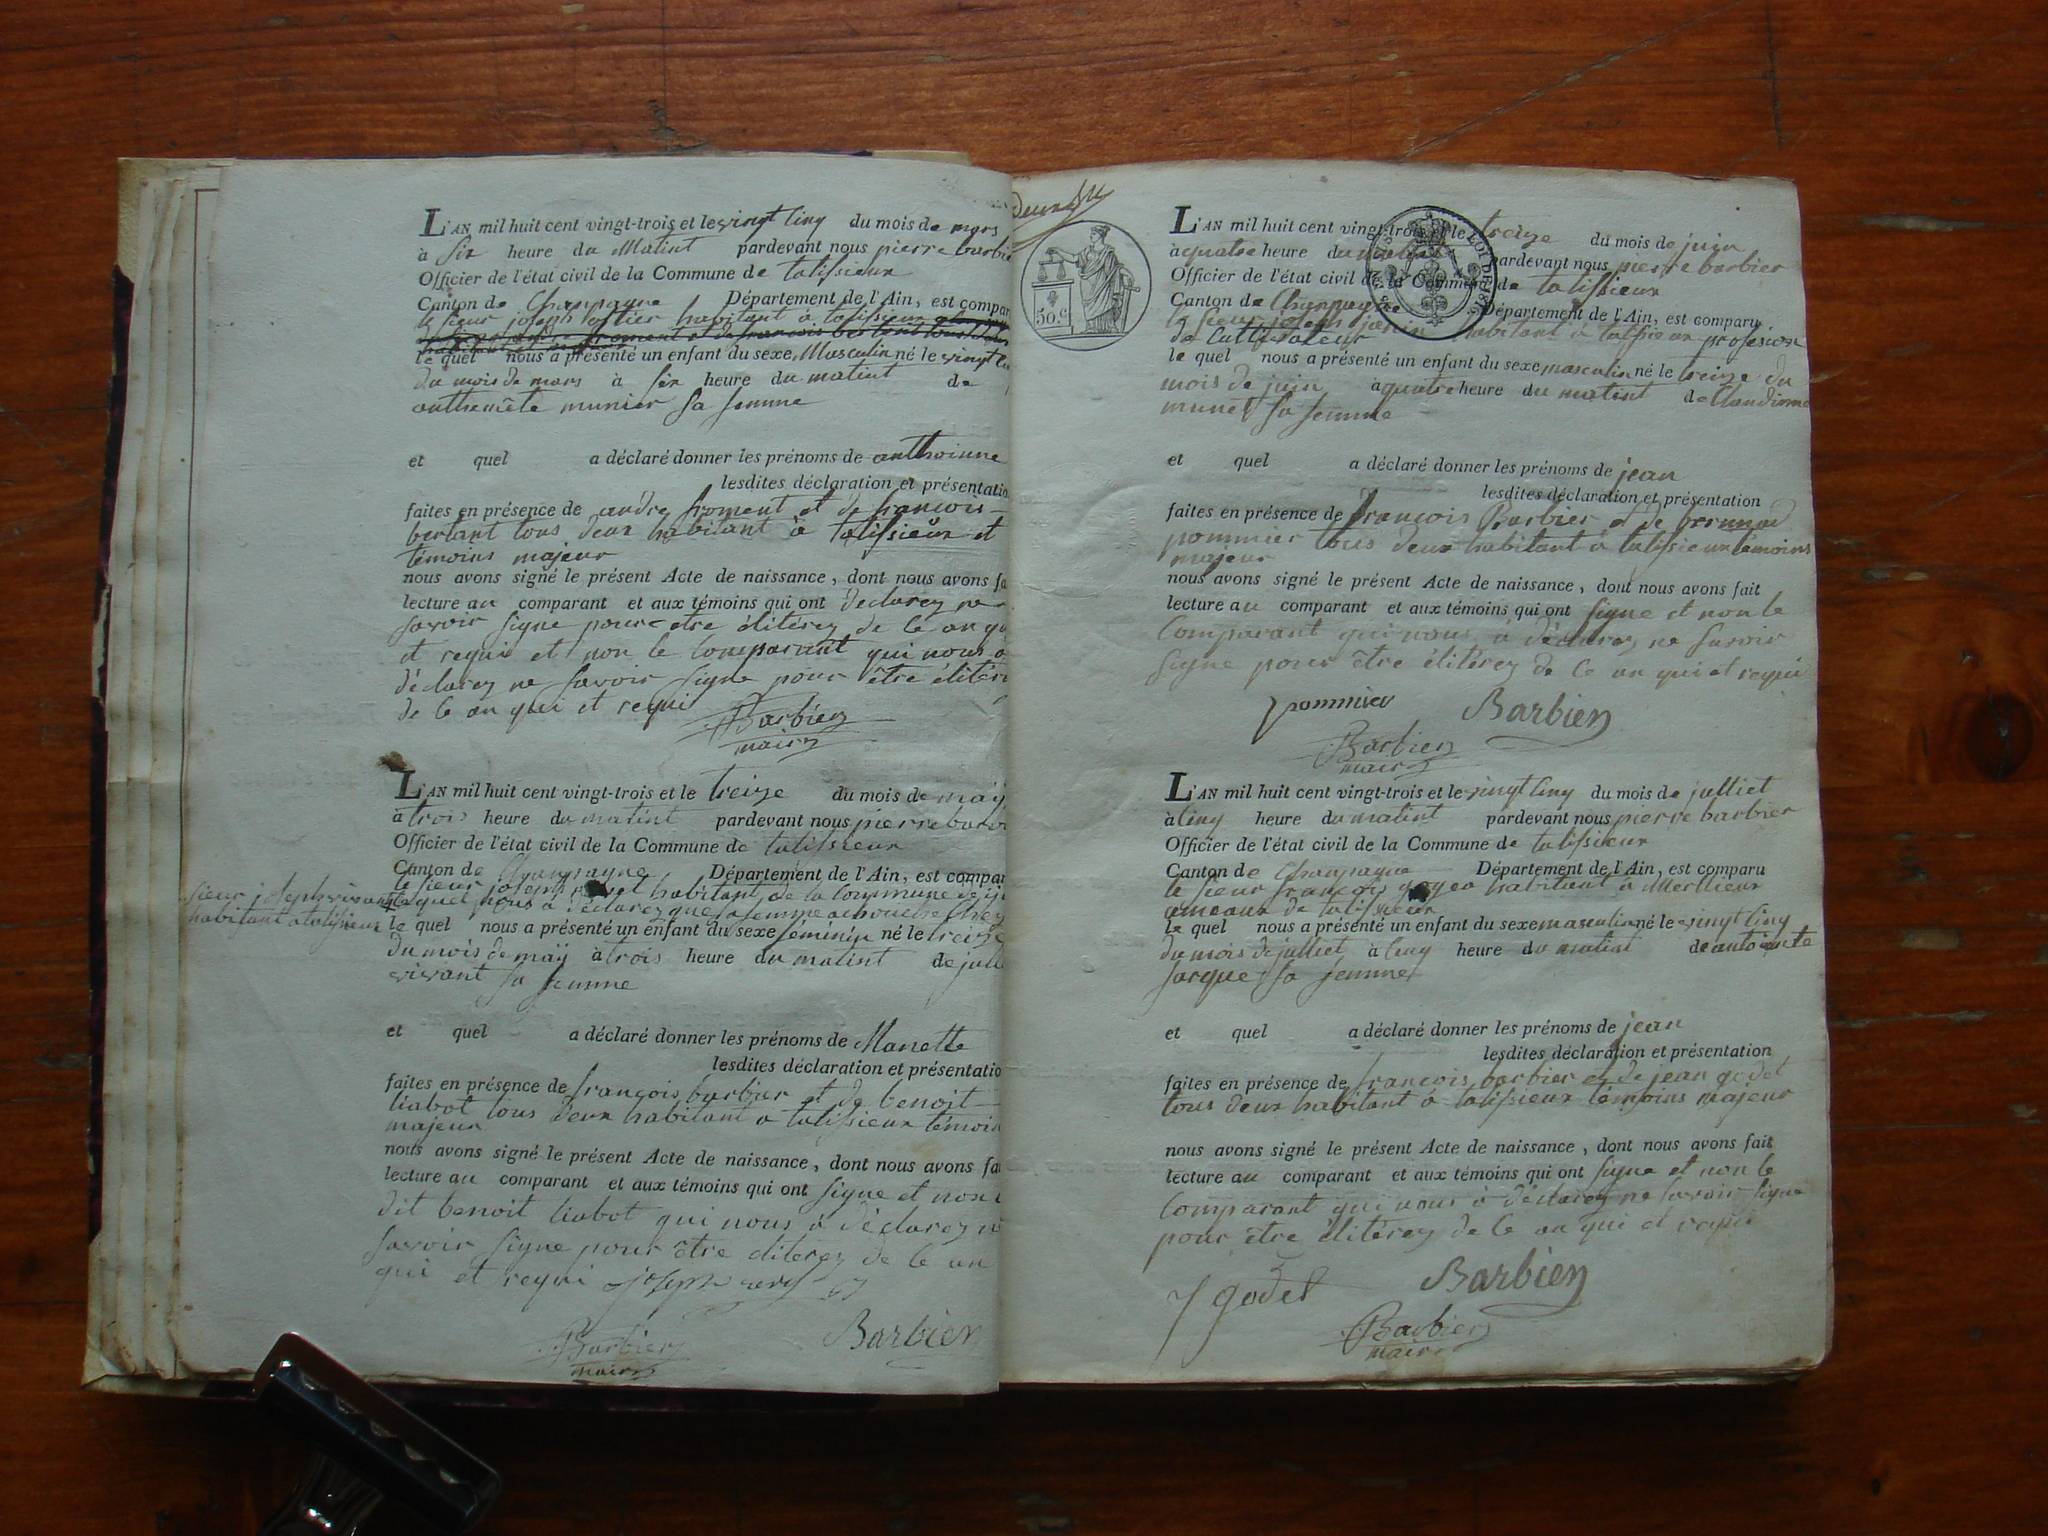 L'AN mil huit cent vingt-trois et le vingt cinq du mois de mars
à six heure du Matint pardevant nous pierre barbie
Officier de l'état civil de la Commune de talissieux
Canton de Champagne Département de l'Ain, est compar
le sieur joseph habitant à talissieux
le quel nous a présenté un enfant du sexe Masculin né le vingt
du mois de mars à six heure du matint de
munier sa femme
et quel a déclaré donner les prénoms de anthoinne
lesdites déclaration et présentatio
faites en présence de andre froment et de françois
bertant tous deux habitant à talissieux et
témoins majeur
nous avons signé le présent Acte de naissance, dont nous avons fa
lecture au comparant et aux témoins qui ont declarez ne
savoir signe pour etre élitérez de ce an qu
et requi et non le comparant qui nous a
déclarez ne savoir signe pour être élitér
de ce an qui et requi
Barbier
maire
L'AN mil huit cent vingt-trois et le treize du mois de maÿ
à trois heure du matint pardevant nous pierre barb
Officier de l'état civil de la Commune de talissieux
Canton de Champagne Département de l'Ain, est compar
le sieur joseph habitant de la commune de
lequel nous à déclarez que sa femme
sieur joseph vivant
habitant a talissieux
le quel nous a présenté un enfant du sexe feminin né le treize
du mois de maÿ à trois heure du matint de
vivant sa femme
et quel a déclaré donner les prénoms de Manette
lesdites déclaration et présentatio
faites en présence de françois barbier et de benoit
liabot tous deux habitant a talissieux témoin
majeur
nous avons signé le présent Acte de naissance, dont nous avons fa
lecture au comparant et aux témoins qui ont signe et non
dit benoit liabot qui nous à déclarez n
savoir signe pour être eliterez de ce an
qui et requi joseph
Barbier
Barbier
maire
50.c
L'AN mil huit cent vingt-trois et le treize du mois de juin
à quatre heure du matint pardevant nous pierre barbier
Officier de l'état civil de la Commune de talissieux
Canton de Champagne Département de l'Ain, est comparu
le sieur habitant à talissieux profesion
de Cultivateur
le quel nous a présenté un enfant du sexe masculin né le treize du
mois de juin à quatre heure du matint de Claudinne
munet sa femme
et quel a déclaré donner les prénoms de jean
lesdites déclaration et présentation
faites en présence de françois Barbier et de
pommier tous deux habitant à talissieux témoins
majeur
nous avons signé le présent Acte de naissance, dont nous avons fait
lecture au comparant et aux témoins qui ont signe et non le
Comparant qui nous à déclarez ne savoir
signe pour être élitérez de ce an qui et requi
pommier Barbier
Barbier
maire
L'AN mil huit cent vingt-trois et le vingt cinq du mois de julliet
à cinq heure du matint pardevant nous pierre barbier
Officier de l'état civil de la Commune de talissieux
Canton de Champagne Département de l'Ain, est comparu
le sieur françois habitant à
ameaux de talissieux
le quel nous a présenté un enfant du sexe masculin né le vingt cinq
du mois de julliet à cinq heure du matint de
sa femme
et quel a déclaré donner les prénoms de jean
lesdites déclaration et présentation
faites en présence de françois barbier et de jean godet
tous deux habitant à talissieux témoins majeur
nous avons signé le présent Acte de naissance, dont nous avons fait
lecture au comparant et aux témoins qui ont signe et non le
Comparant qui nous à déclarez ne savoir signe
pour être élitérez de ce an qui et requi
J godet Barbier
Barbier
maire